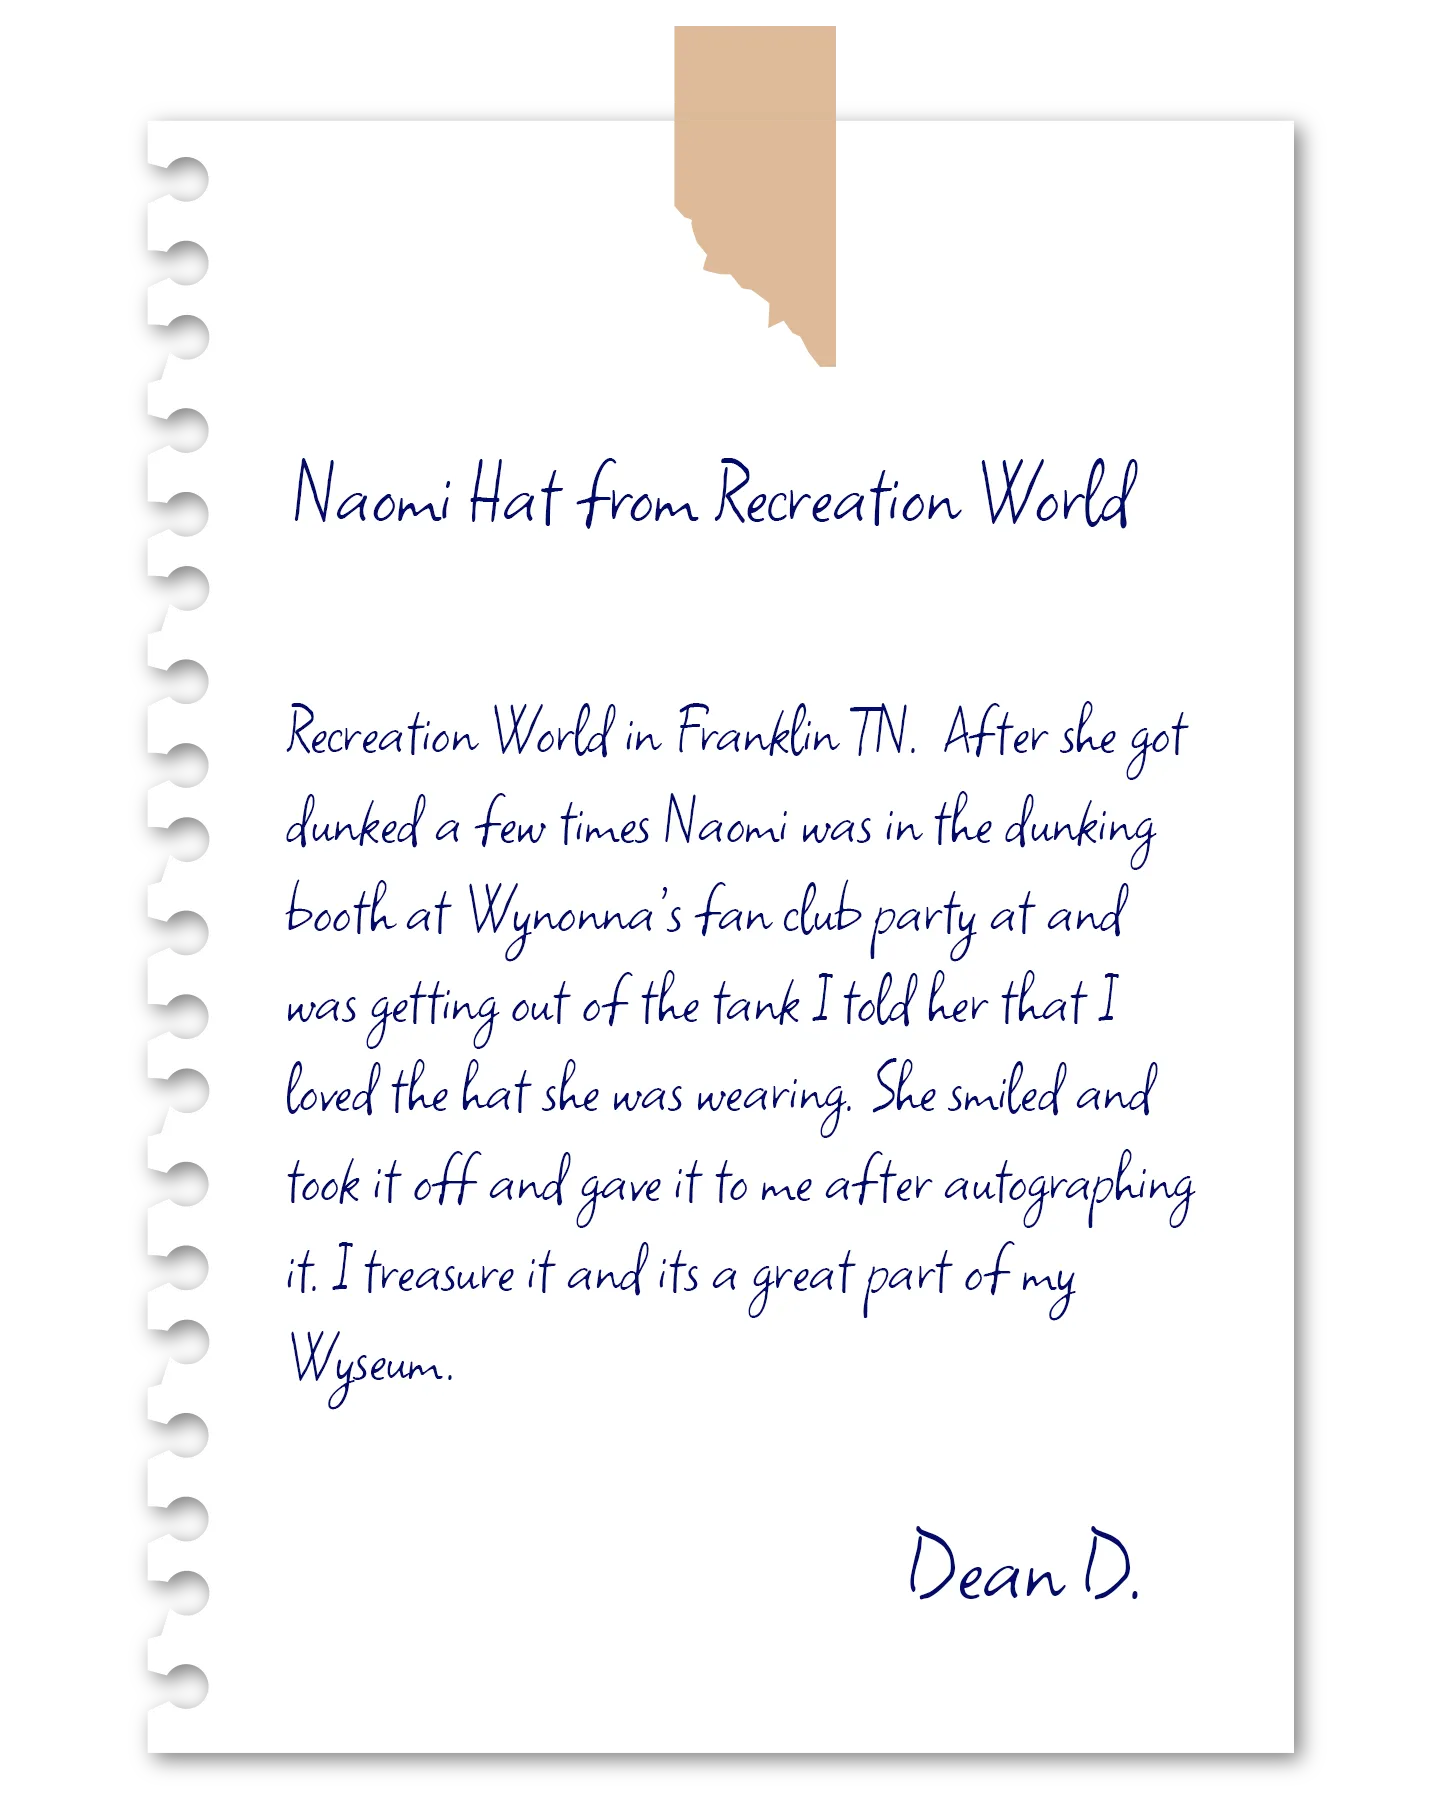 Naomi Hat from Recreation World
Recreation World in Franklin TN. After she got
dunked a few times Naomi was in the dunking
booth at Wynonna's fan club party at and
was getting out of the tank I told her that I
loved the hat she was wearing. She smiled and
took it off and gave it to me after autographing
it. I treasure it and its a great part of my
Wyseum.
Dean D.